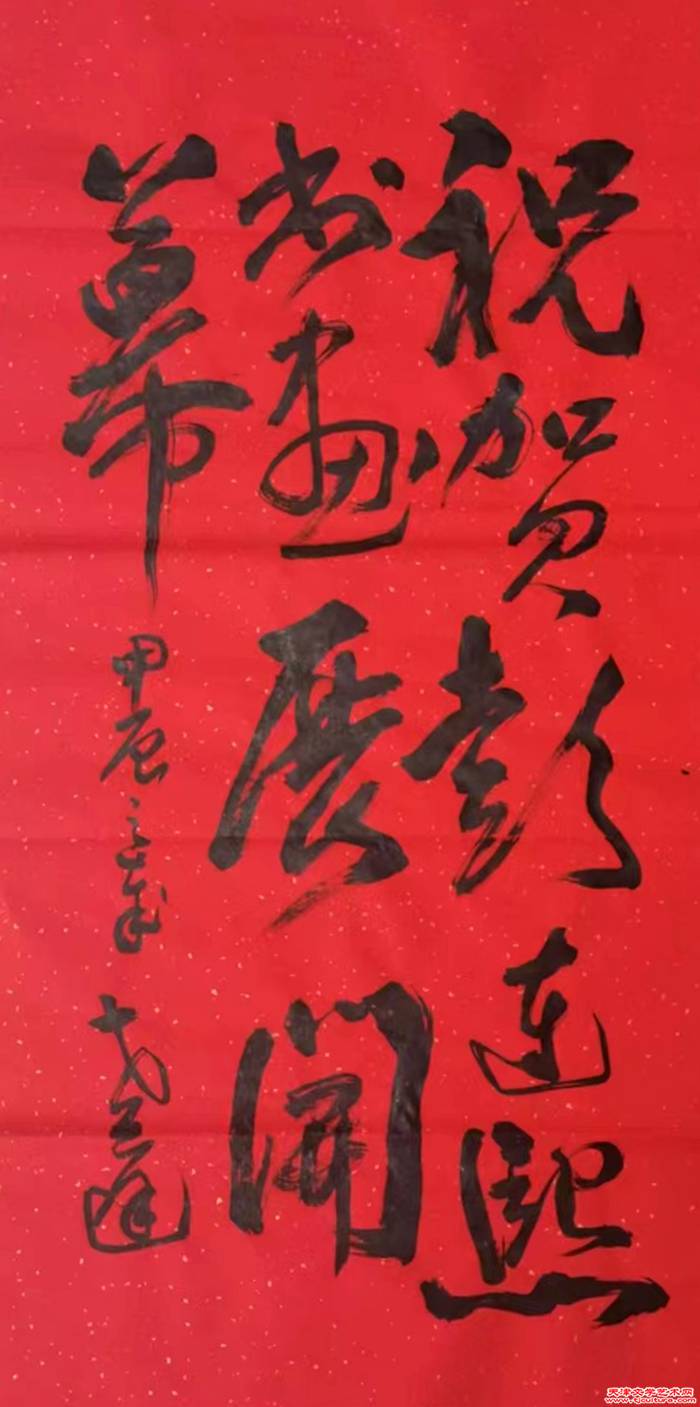 祝贺彭连熙
书画展开
幕
甲辰之年
天津文学艺术网
www.tjculture.com